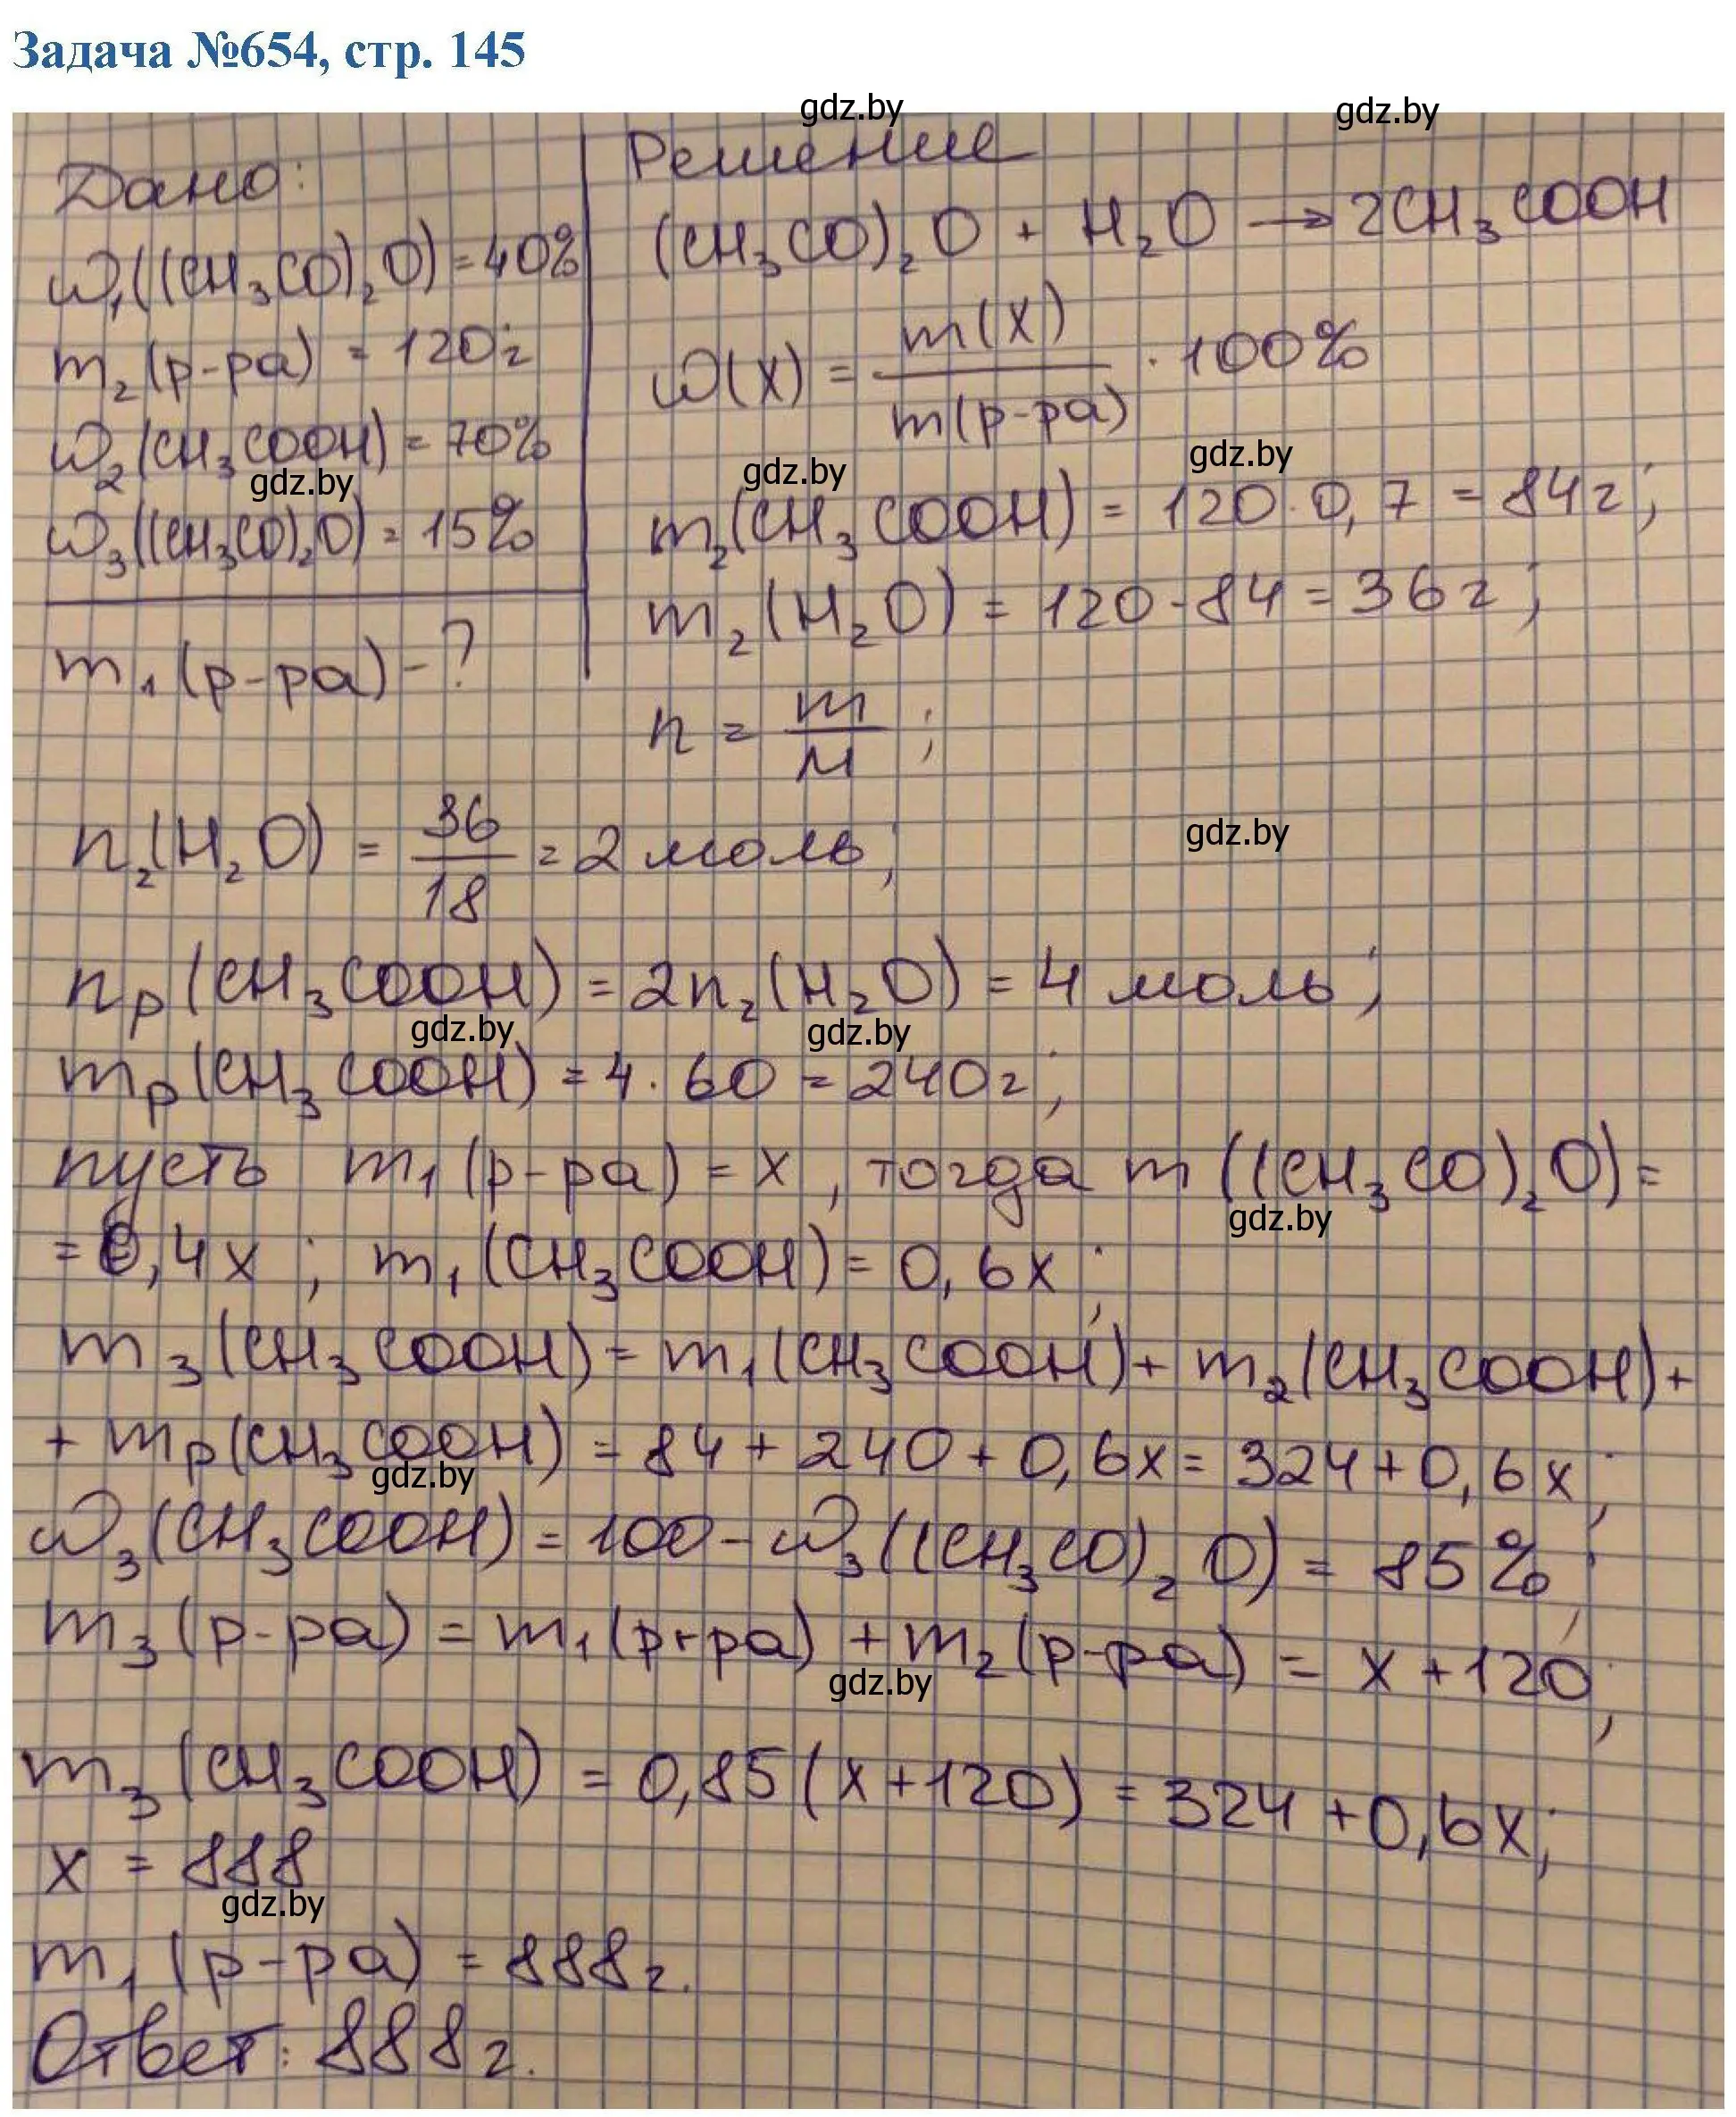 Задача №654, стр. 145
gdz.by gdz.by
Дано:
ω₁((CH₃CO)₂O) = 40%
m₂(р-ра) = 120г
ω₂(CH₃COOH) = 70%
gdz.by
ω₃((CH₃CO)₂O) = 15%
m₁(р-ра) - ?
Решение
(CH₃CO)₂O + H₂O → 2CH₃COOH
ω(X) = m(X) / m(р-ра) · 100%
gdz.by gdz.by
m₂(CH₃COOH) = 120·0,7 = 84г;
m₂(H₂O) = 120-84 = 36г;
n = m / M ;
n₂(H₂O) = 36 / 18 = 2 моль;
gdz.by
nₚ(CH₃COOH) = 2n₂(H₂O) = 4 моль;
gdz.by gdz.by
mₚ(CH₃COOH) = 4·60 = 240г;
пусть m₁(р-ра) = x, тогда m((CH₃CO)₂O) =
gdz.by
= 0,4x ; m₁(CH₃COOH) = 0,6x ;
m₃(CH₃COOH) = m₁(CH₃COOH) + m₂(CH₃COOH) +
+ mₚ(CH₃COOH) = 84 + 240 + 0,6x = 324 + 0,6x;
gdz.by
ω₃(CH₃COOH) = 100 - ω₃((CH₃CO)₂O) = 85%;
m₃(р-ра) = m₁(р-ра) + m₂(р-ра) = x + 120;
gdz.by
m₃(CH₃COOH) = 0,85(x+120) = 324 + 0,6x;
x = 888
gdz.by
m₁(р-ра) = 888г.
Ответ: 888г.